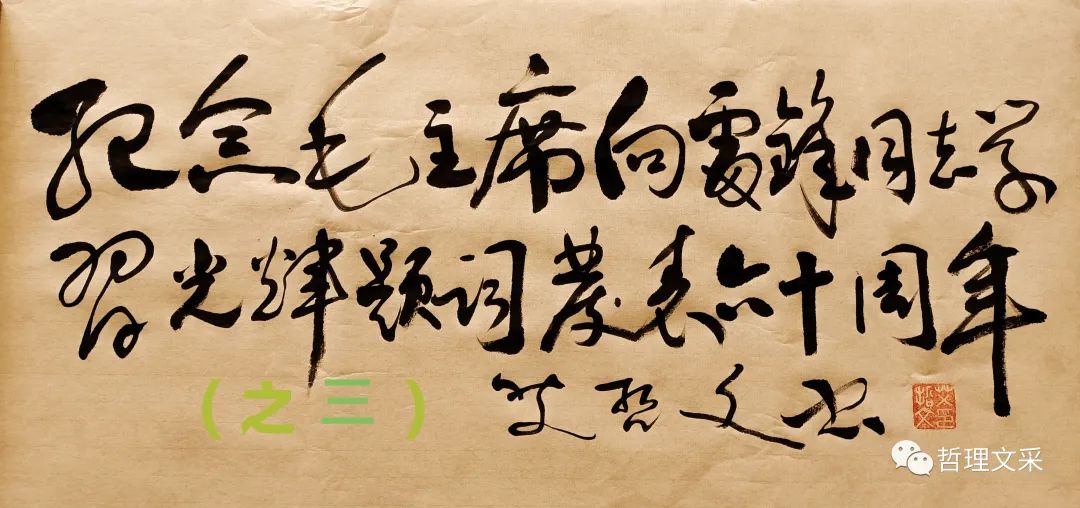 纪念毛主席向雷锋同志学
習光辉题词發表六十周年
(之三) 艾哲文书
哲理文采